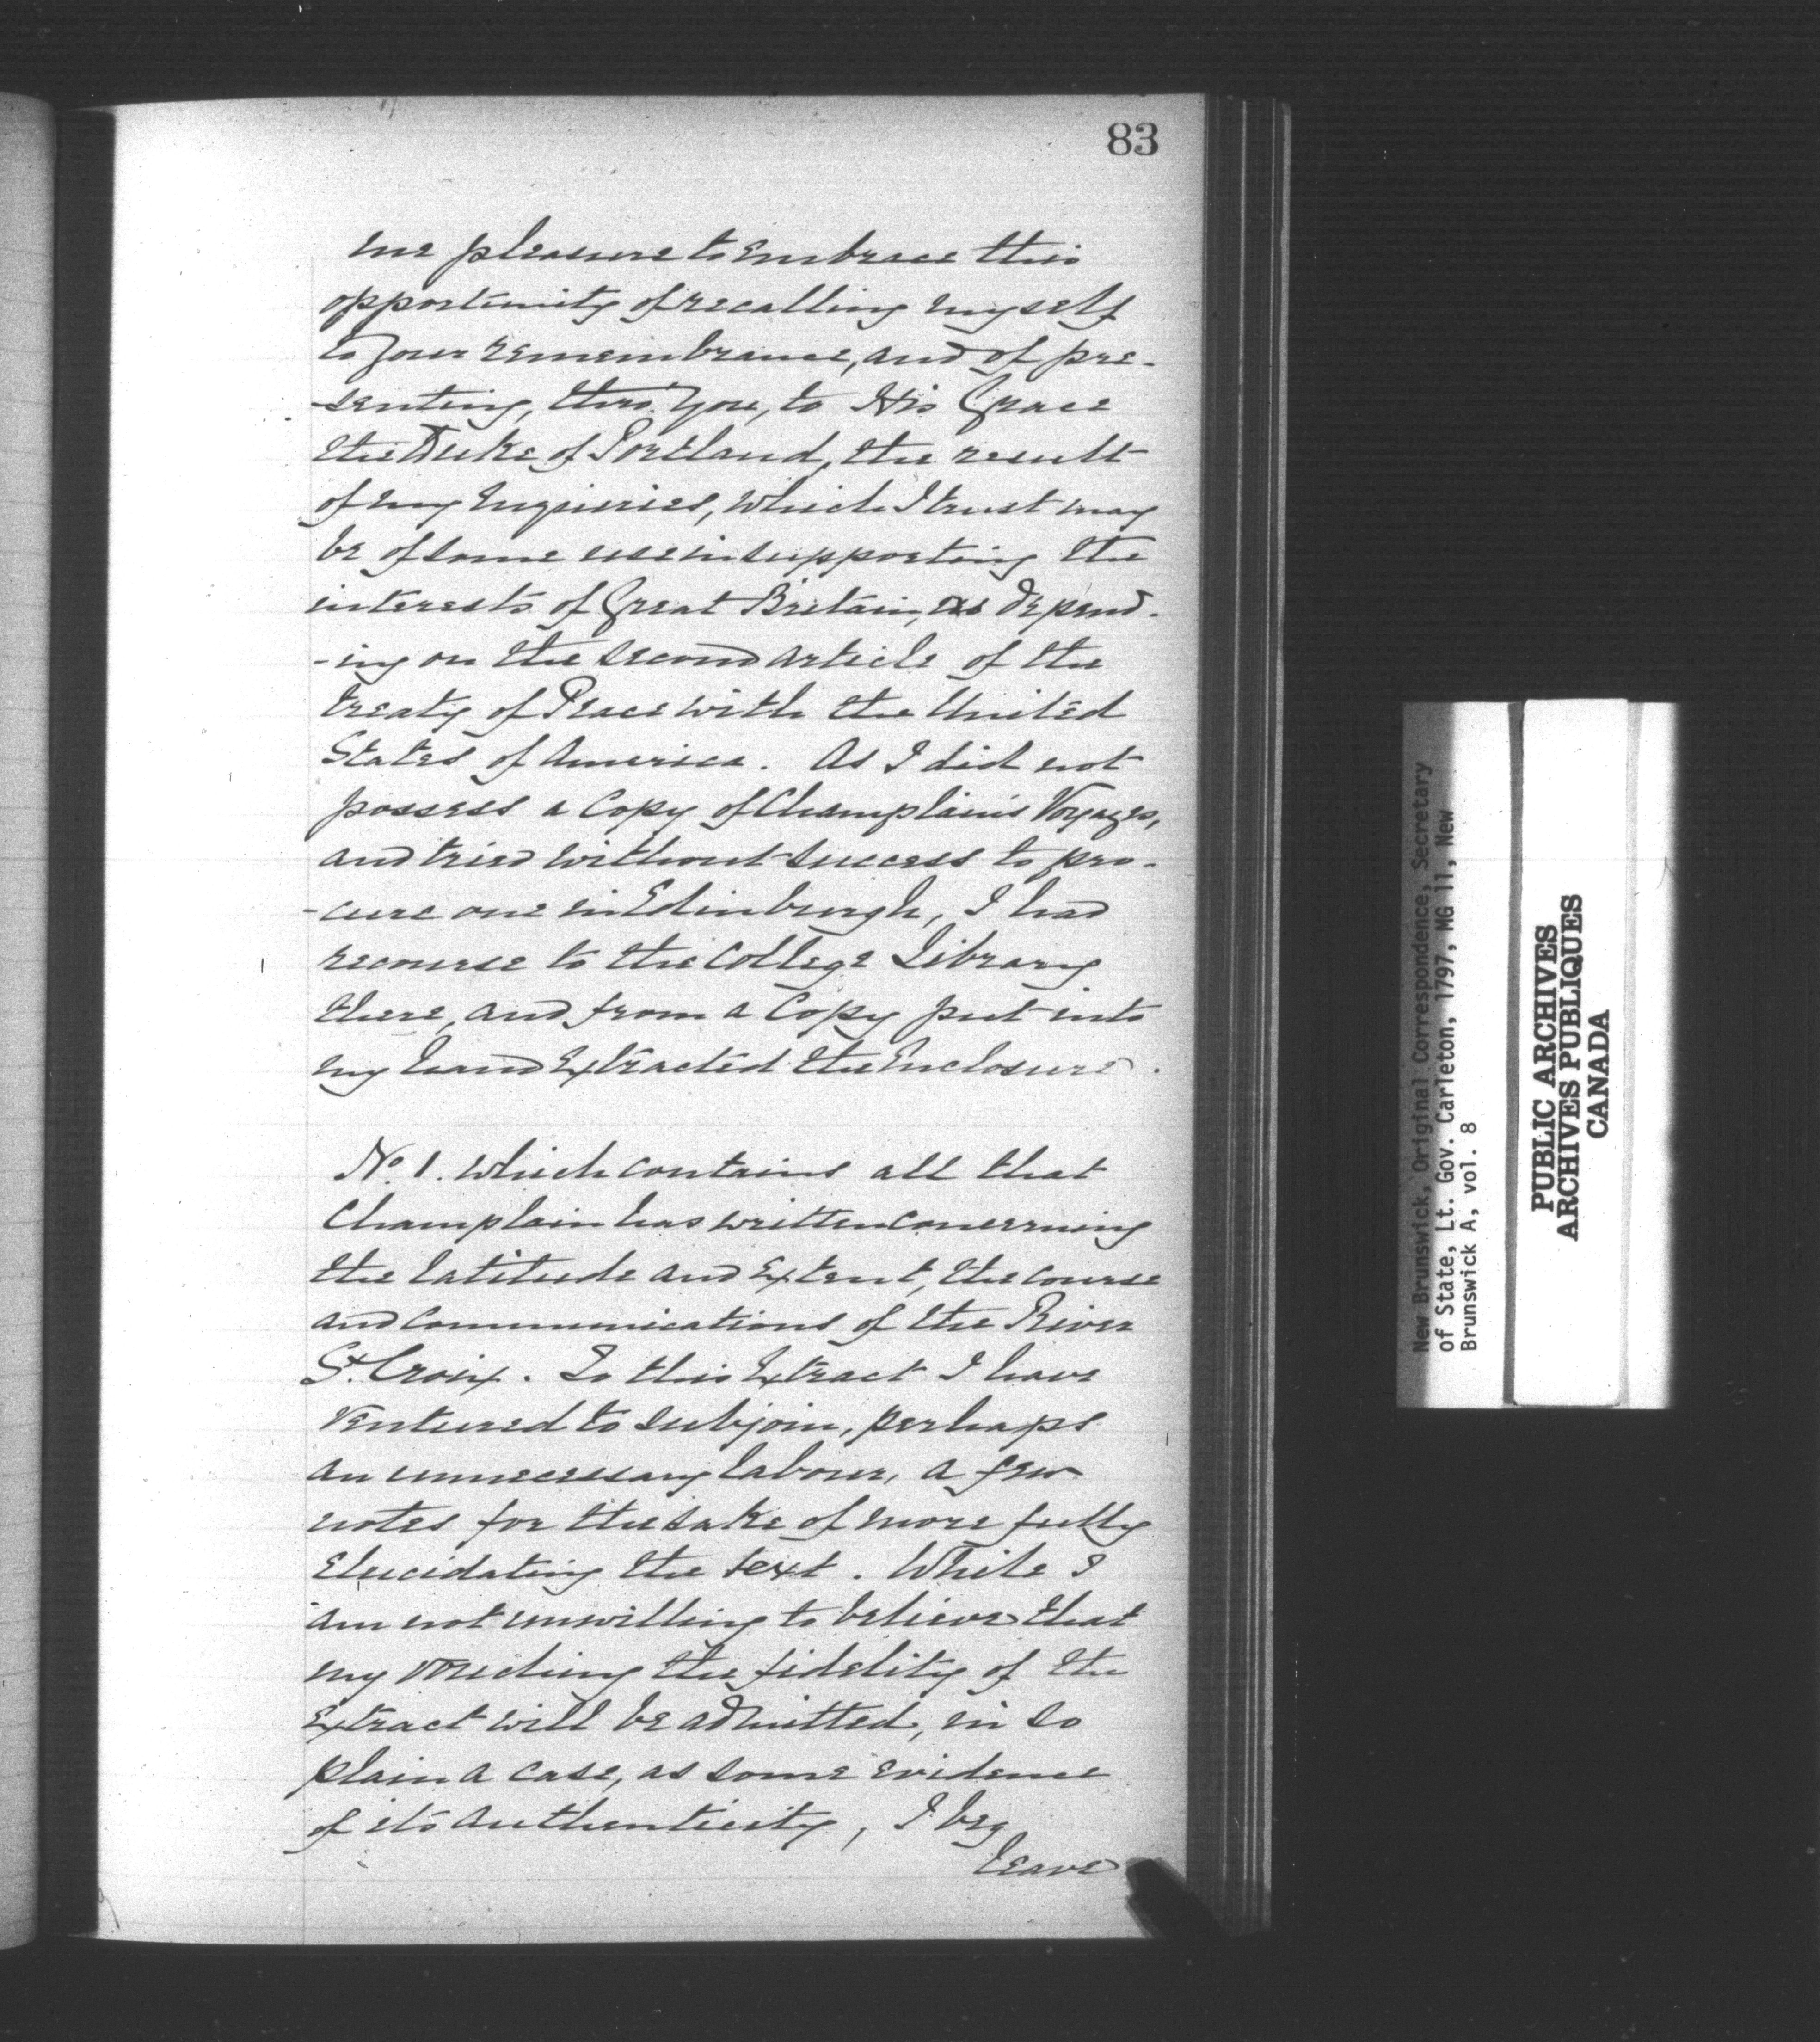 83
me pleasure to embrace this
opportunity of recalling myself
to your remembrance, and of pre-
-senting, thro' You, to His Grace
the Duke of Portland, the result
of my Inquiries, which I trust may
be of some use in supporting the
interests of Great Britain, as depend-
-ing on the second article of the
treaty of Peace with the United
States of America. As I did not
possess a Copy of Champlain's Voyages,
and tried without success to pro-
-cure one in Edinburgh, I had
recourse to the College Library
there, and from a Copy put into
my hand Extracted the Enclosure.
No. 1. which contains all that
Champlain has written concerning
the latitude and Extent, the course
and communications of the River
St. Croix. To this Extract I have
ventured to subjoin, perhaps
an unnecessary labour, a few
notes for the sake of more fully
Elucidating the text. While I
am not unwilling to believe that
my vouching the fidelity of the
Extract will be admitted, in so
plain a case, as some evidence
of its authenticity, I beg
leave
New Brunswick, Original Correspondence, Secretary
of State, Lt. Gov. Carleton, 1797, MG 11, New
Brunswick A, vol. 8
PUBLIC ARCHIVES
ARCHIVES PUBLIQUES
CANADA